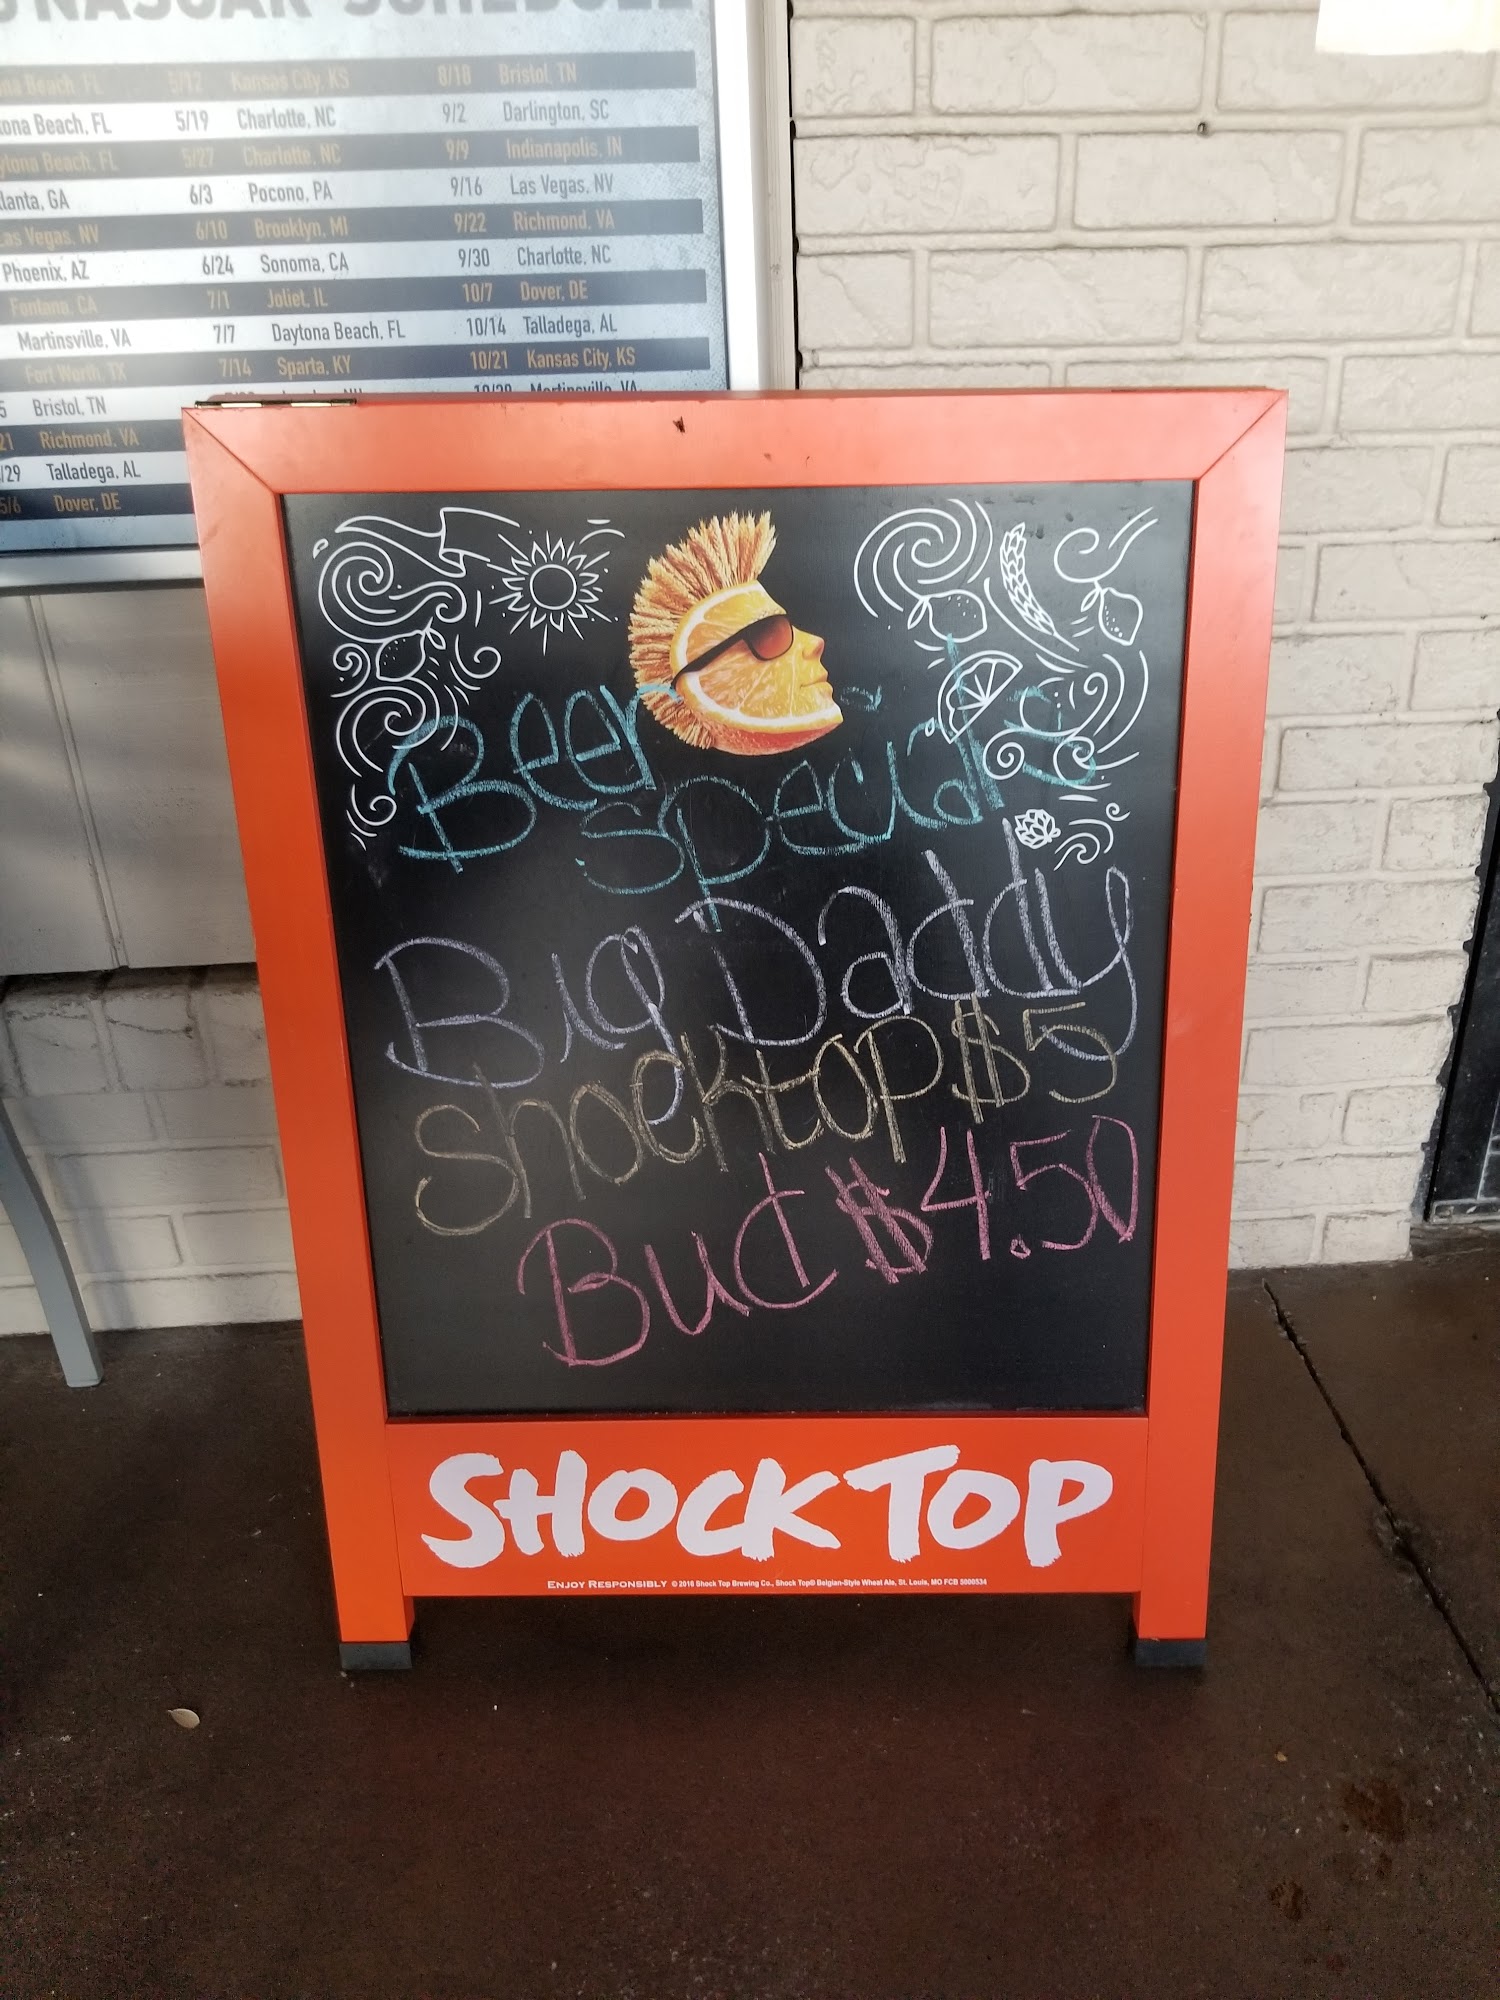 NASCAR SCHEDULE
na Beach, FL 5/12 Kansas City, KS 8/18 Bristol, TN
ona Beach, FL 5/19 Charlotte, NC 9/2 Darlington, SC
ytona Beach, FL 5/27 Charlotte, NC 9/9 Indianapolis, IN
lanta, GA 6/3 Pocono, PA 9/16 Las Vegas, NV
as Vegas, NV 6/10 Brooklyn, MI 9/22 Richmond, VA
Phoenix, AZ 6/24 Sonoma, CA 9/30 Charlotte, NC
Fontana, CA 7/1 Joliet, IL 10/7 Dover, DE
Martinsville, VA 7/7 Daytona Beach, FL 10/14 Talladega, AL
Fort Worth, TX 7/14 Sparta, KY 10/21 Kansas City, KS
5 Bristol, TN 10/28 Martinsville, VA
21 Richmond, VA
/29 Talladega, AL
5/6 Dover, DE
Beer
specials
Big Daddy
shocktop $5
Bud $4.50
SHOCK TOP
ENJOY RESPONSIBLY © 2016 Shock Top Brewing Co., Shock Top® Belgian-Style Wheat Ale, St. Louis, MO FCB 5000534